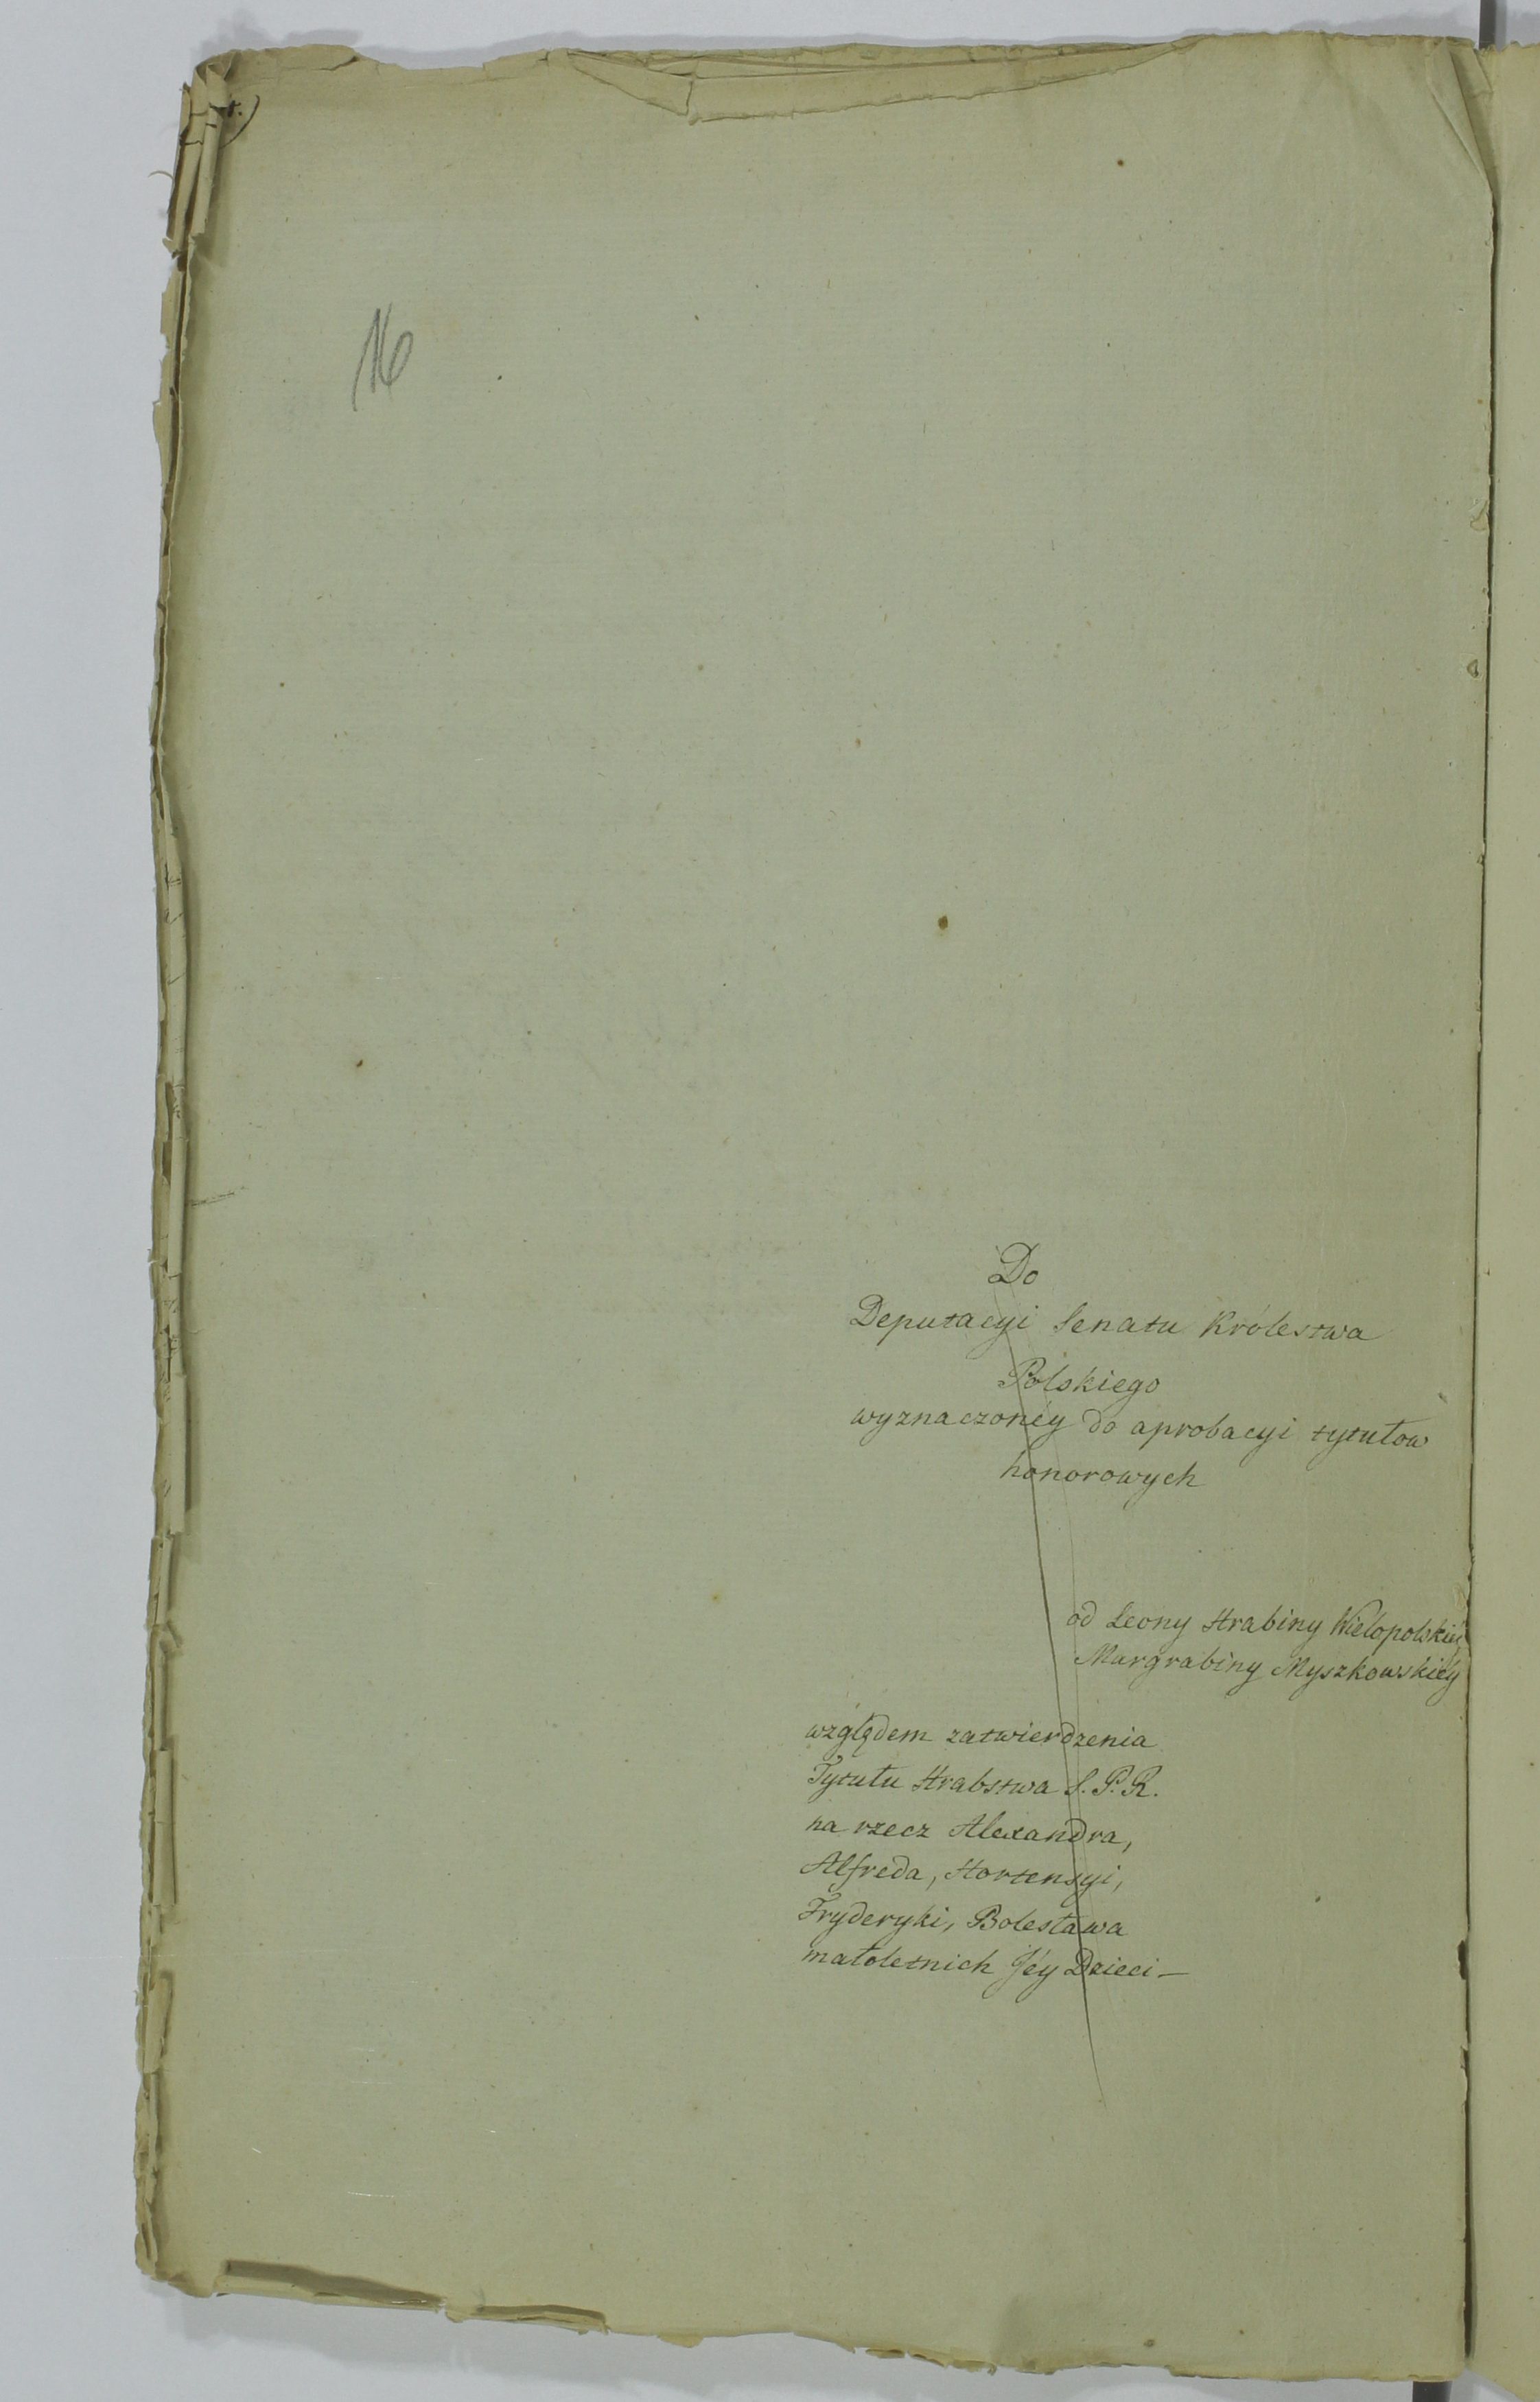 16
Do
Deputacyi Senatu Królestwa
Polskiego
wyznaczonéy do aprobacyi tytułow
honorowych
od Leony Hrabiny Wielopolskiéy
Margrabiny Myszkowskiéy
względem zatwierdzenia
Tytułu Hrabstwa S. P. R.
na rzecz Alexandra,
Alfreda, Hortensyi,
Fryderyki, Bolesława
małoletnich Jéy Dzieci —